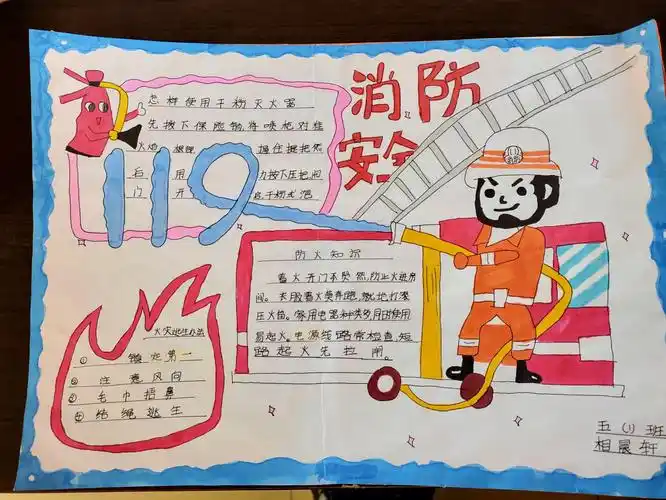 消防
安全
怎样使用干粉灭火器
先拔下保险销,将喷枪对准
火焰根部 握住提把然
后用 力按下压把阀
门开 启,干粉或泡
119
防火知识
着火开门不贸然,防止火进房
间。衣服着火莫奔跑,就地打滚
压火苗。家用电器种类多,同时使用
易起火。电源线路常检查,短
路起火先拉闸。
火灾逃生办法
① 镇定第一
② 注意风向
③ 毛巾捂鼻
④ 结绳逃生
五(1)班
相晨轩